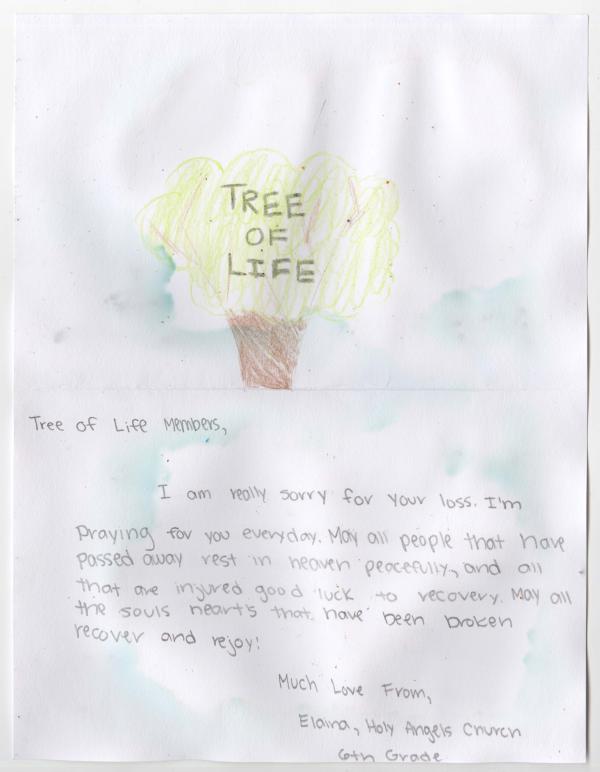 TREE
OF
LIFE
Tree of Life Members,
I am really sorry for your loss. I'm
praying for you everyday. May all people that have
passed away rest in heaven peacefully, and all
that are injured good luck to recovery. May all
the souls hearts that have been broken
recover and rejoy!
Much Love From,
Elaina, Holy Angels Church
6th Grade